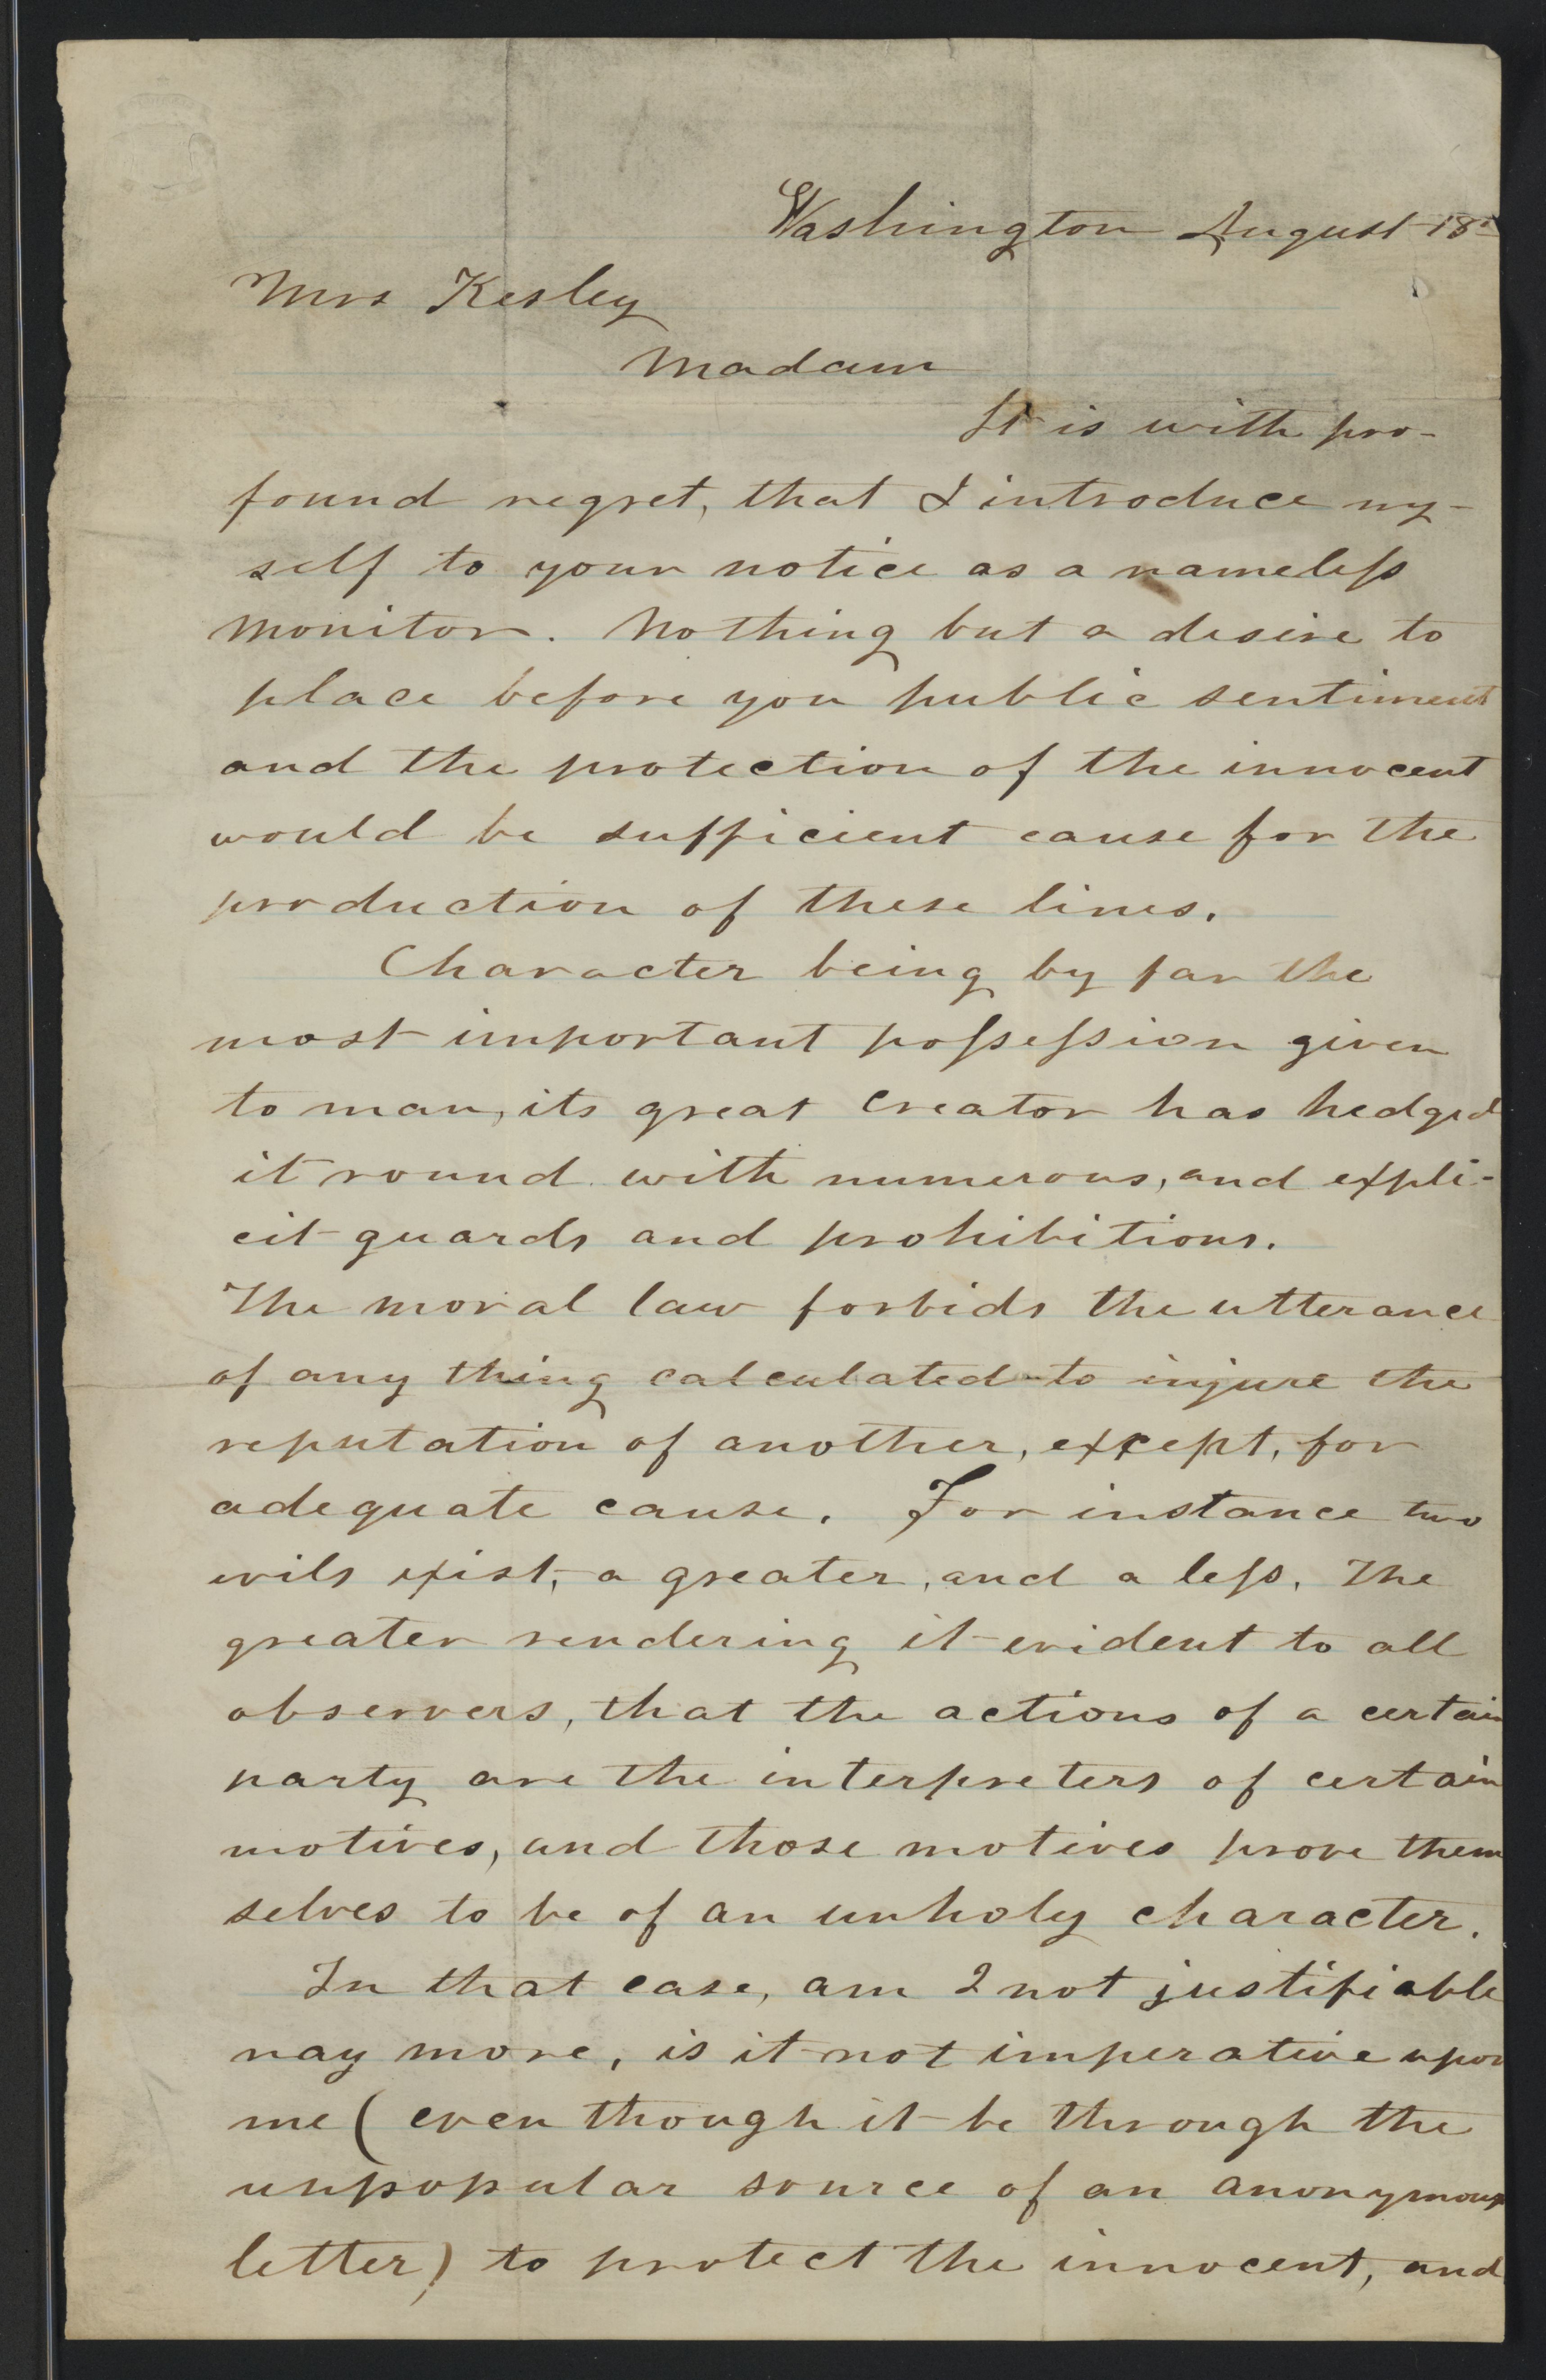 Washington August 18th
Mrs Kesley
Madam
It is with pro-
found regret, that I introduce my-
self to your notice as a nameless
monitor. Nothing but a desire to
place before you public sentiment
and the protection of the innocent
would be sufficient cause for the
production of these lines.
Character being by far the
most important possession given
to man, its great Creator has hedged
it round with numerous, and expli-
cit guards and prohibitions.
The moral law forbids the utterance
of any thing calculated to injure the
reputation of another, except, for
adequate cause. For instance two
evils exist, a greater, and a less. The
greater rendering it evident to all
observers, that the actions of a certain
party are the interpreters of certain
motives, and those motives prove them
selves to be of an unholy character.
In that case, am I not justifiable
nay more, is it not imperative upon
me (even though it be through the
unpopular source of an anonymous
letter) to protect the innocent, and